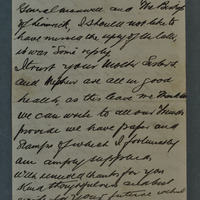 General Maxwell and The Bishop
of Limerick, I should not like to
have missed the copy of the latter
it was "some" reply.
I trust your Mother Sisters
and Nephew are all in good
health, as this leaves me Thank God
we can write to all our friends
provide we have paper and
stamps of which I fortunately
am amply supplied.
With renewed thanks for your
Kind thoughtfulness and best
wishes for your future